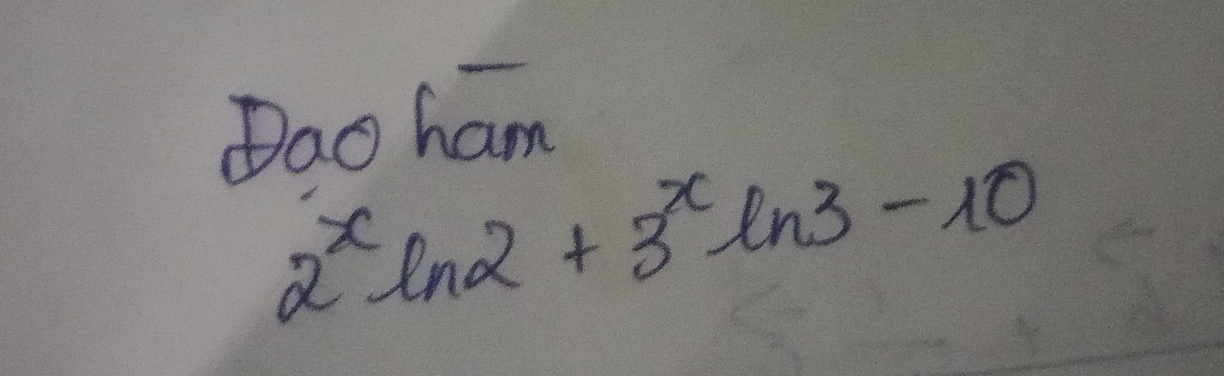 Đạo hàm
2^x ln2 + 3^x ln3 - 10